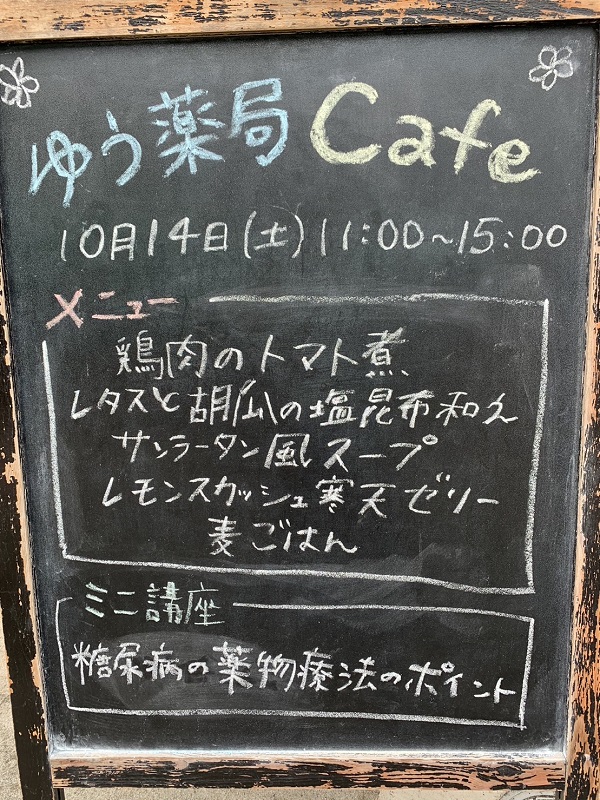 ゆう薬局 Cafe
10月14日(土)11:00~15:00
メニュー
鶏肉のトマト煮
レタスと胡瓜の塩昆布和え
サンラータン風スープ
レモンスカッシュ寒天ゼリー
麦ごはん
ミニ講座
糖尿病の薬物療法のポイント